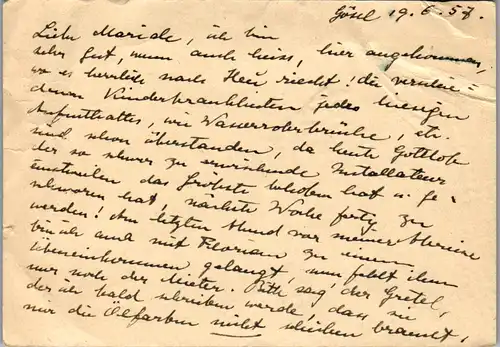 Gösel 19.6.57.
Liebe Mariele, ich bin
sehr gut, wenn auch heiss, hier angekommen,
wo es herrlich nach Heu riecht! die verschie-
denen Kinderkrankheiten jedes hiesigen
Aufenthaltes, wie Wasserrohrbrüche, etc.
sind schon überstanden, da heute Gottlob
der so schwer zu erwischende Installateur
einstweilen das Gröbste behoben hat u. ge-
schworen hat, nächste Woche fertig zu
werden! Am letzten Abend vor meiner Abreise
bin ich auch mit Florian zu einem
Übereinkommen gelangt, nun fehlt ihm
nur noch der Mieter. Bitte sag' der Gretel,
der ich bald schreiben werde, dass sie
mir die Ölfarben nicht schicken braucht,